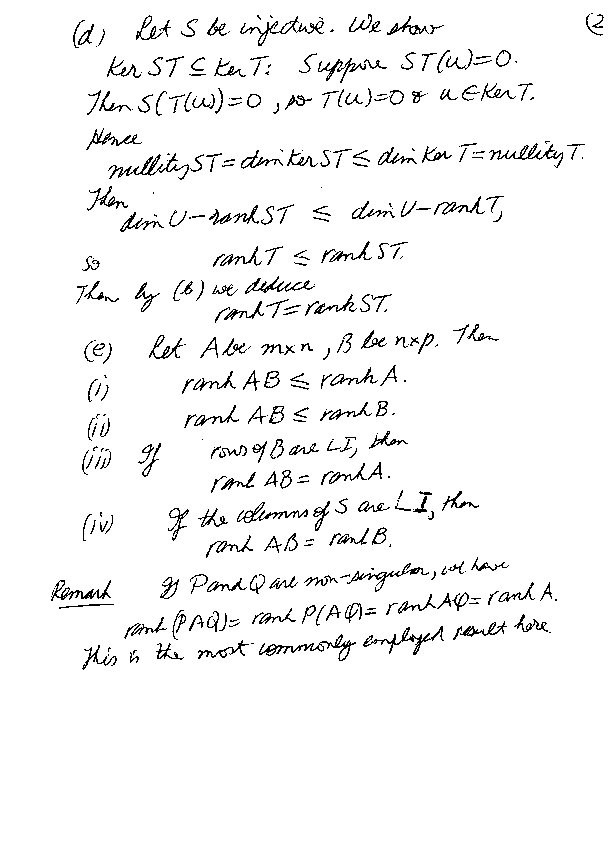 (d) Let S be injective. We show (2
Ker ST ⊆ Ker T: Suppose ST(u)=0.
Then S(T(u))=0, so T(u)=0 & u ∈ Ker T.
Hence
nullity ST = dim Ker ST ≤ dim Ker T = nullity T.
Then
dim U – rank ST ≤ dim U – rank T,
So rank T ≤ rank ST.
Then by (b) we deduce
rank T = rank ST.
(e) Let A be m×n, B be n×p. Then
(i) rank AB ≤ rank A.
(ii) rank AB ≤ rank B.
(iii) If rows of B are LI, then
rank AB = rank A.
(iv) If the columns of S are LI, then
rank AB = rank B.
Remark If P and Q are non-singular, we have
rank (PAQ) = rank P(AQ) = rank AQ = rank A.
This is the most commonly employed result here.